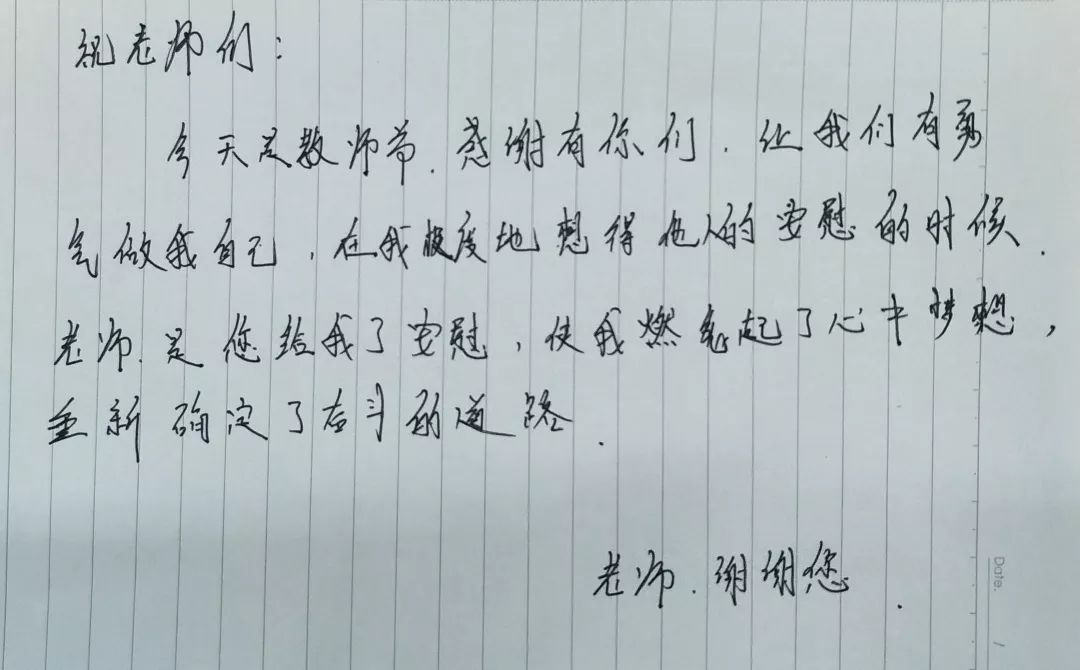 祝老师们:
今天是教师节.感谢有你们.让我们有勇
气做我自己,在我极度地想得他人的安慰的时候.
老师.是您给我了安慰,使我燃起了心中梦想,
重新确定了奋斗的道路.
老师.谢谢您.
Date. /